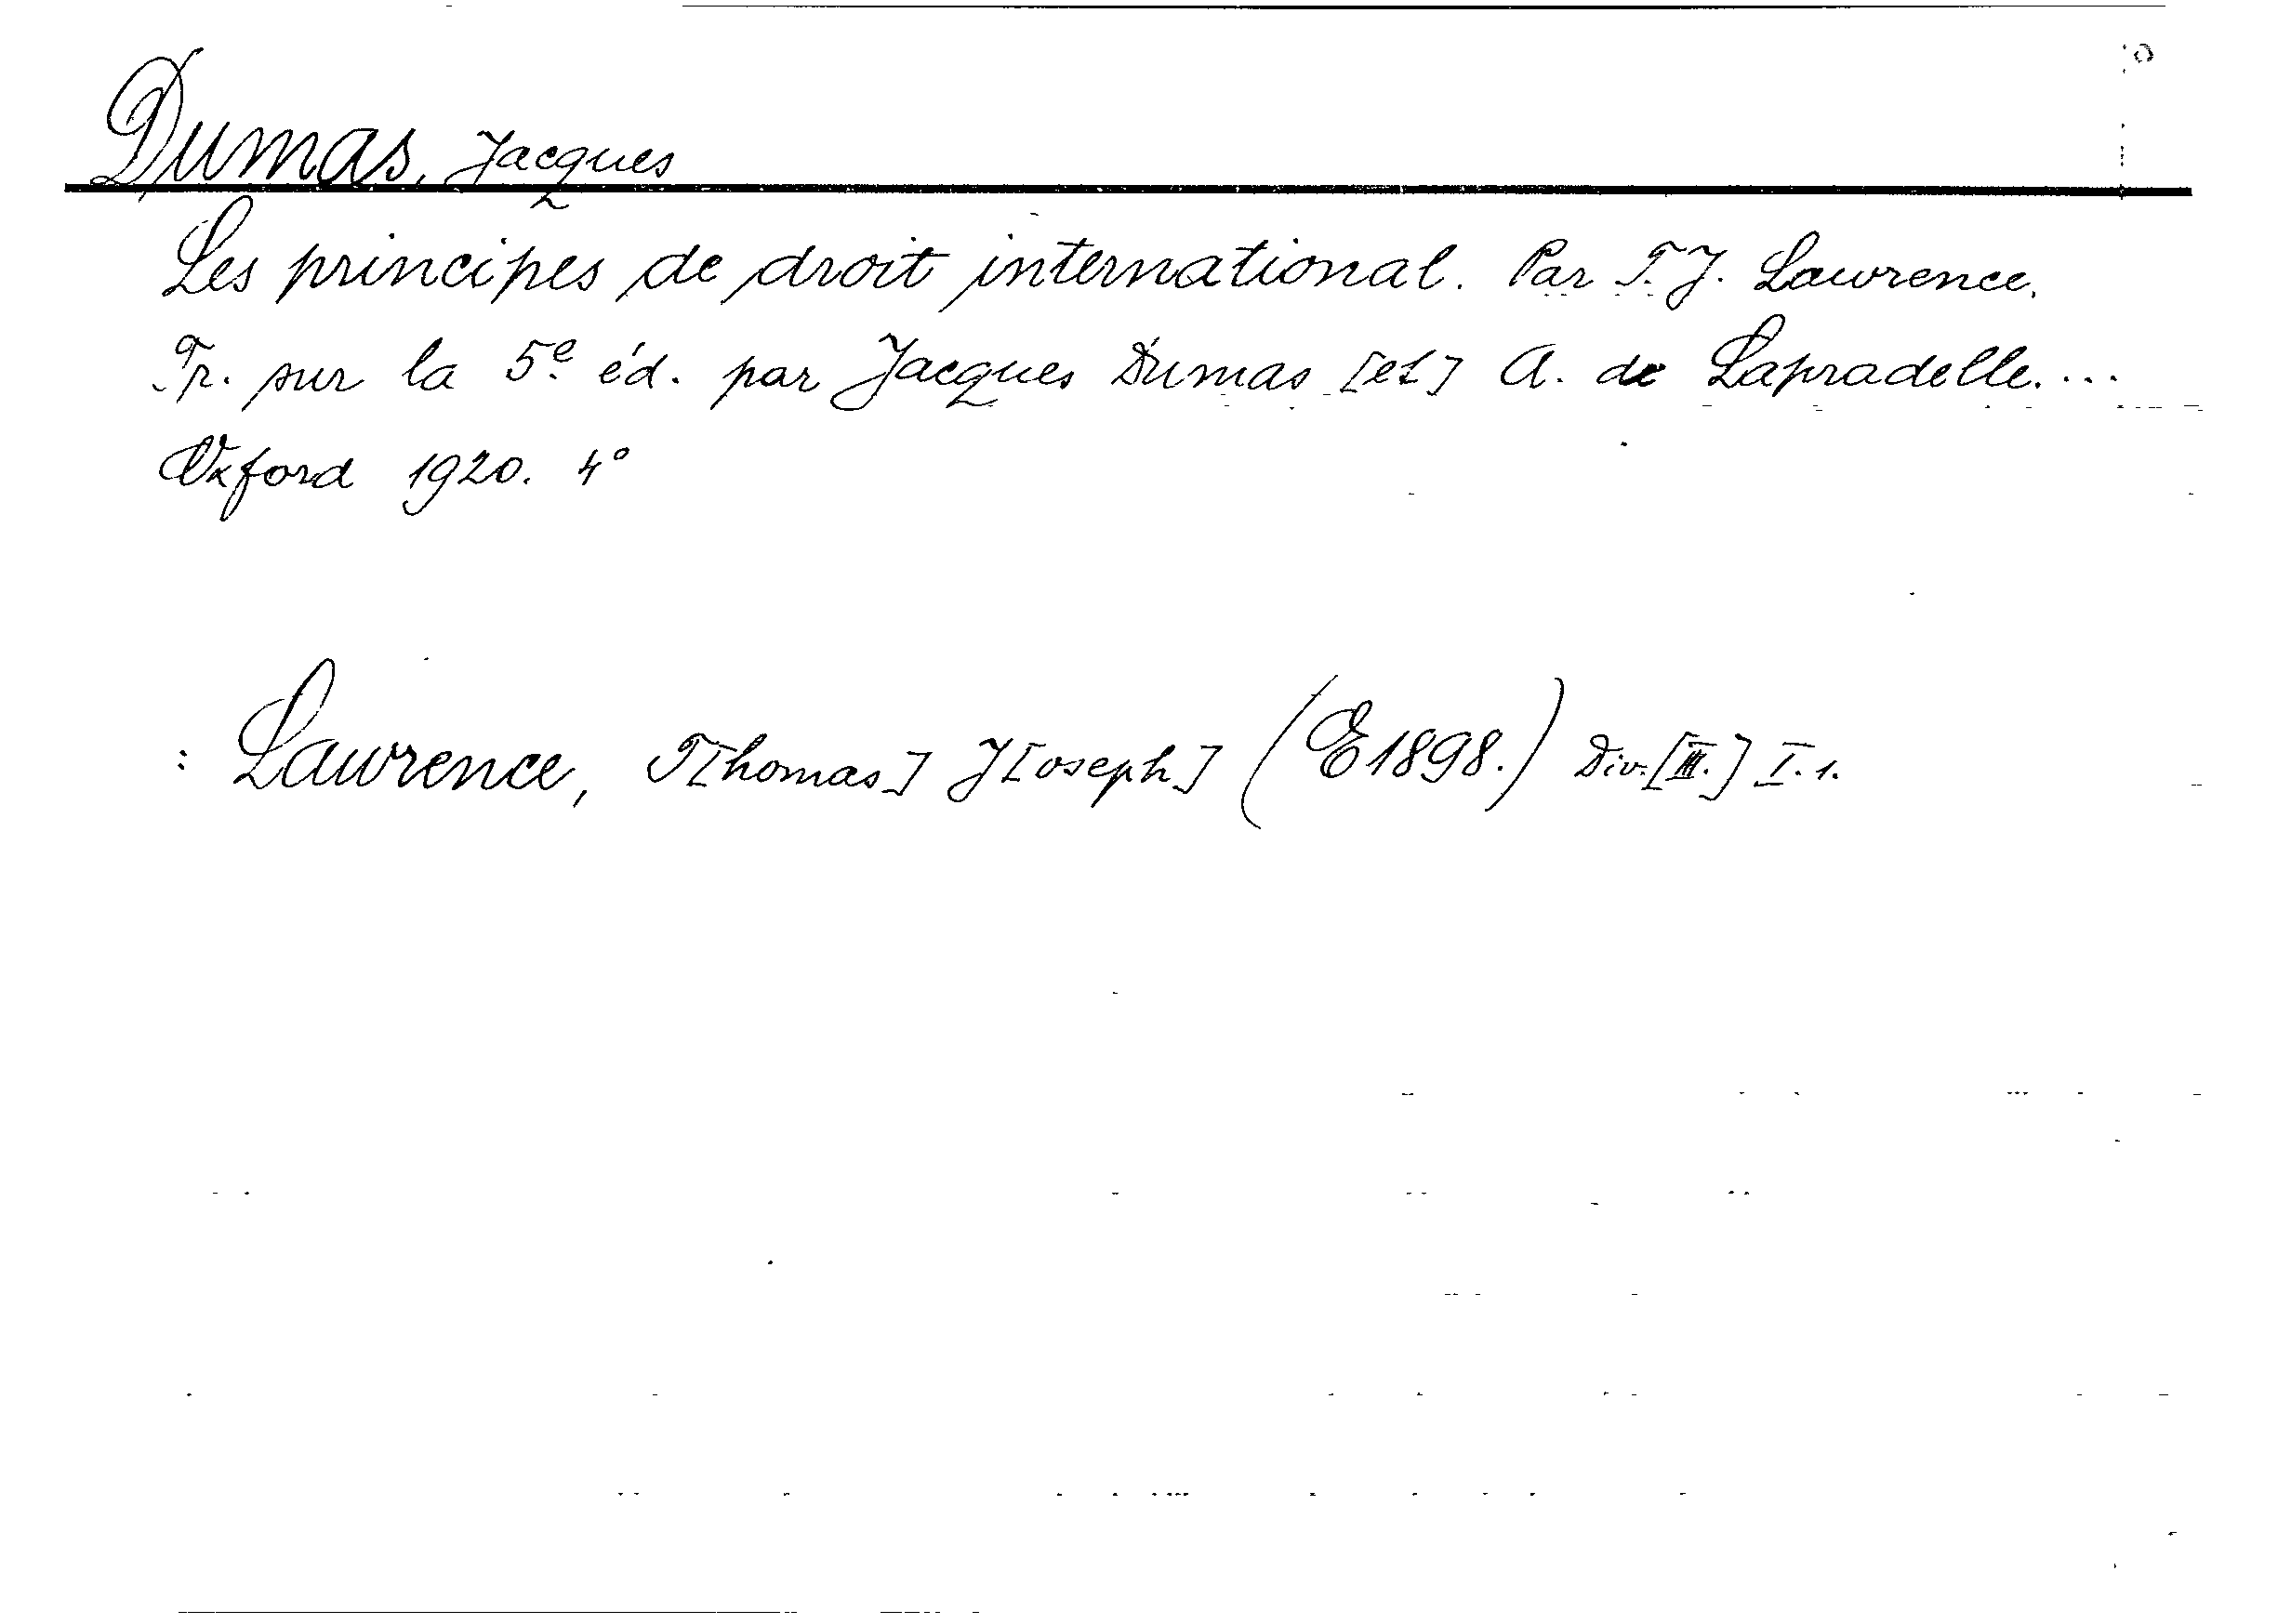 Dumas, Jacques
Les principes de droit international. Par T. J. Lawrence.
Tr. sur la 5e éd. par Jacques Dumas [et] A. de Lapradelle. ...
Oxford 1920. 4°
: Lawrence, T[homas] J[oseph] (E 1898.) Div. [III.] I. 1.